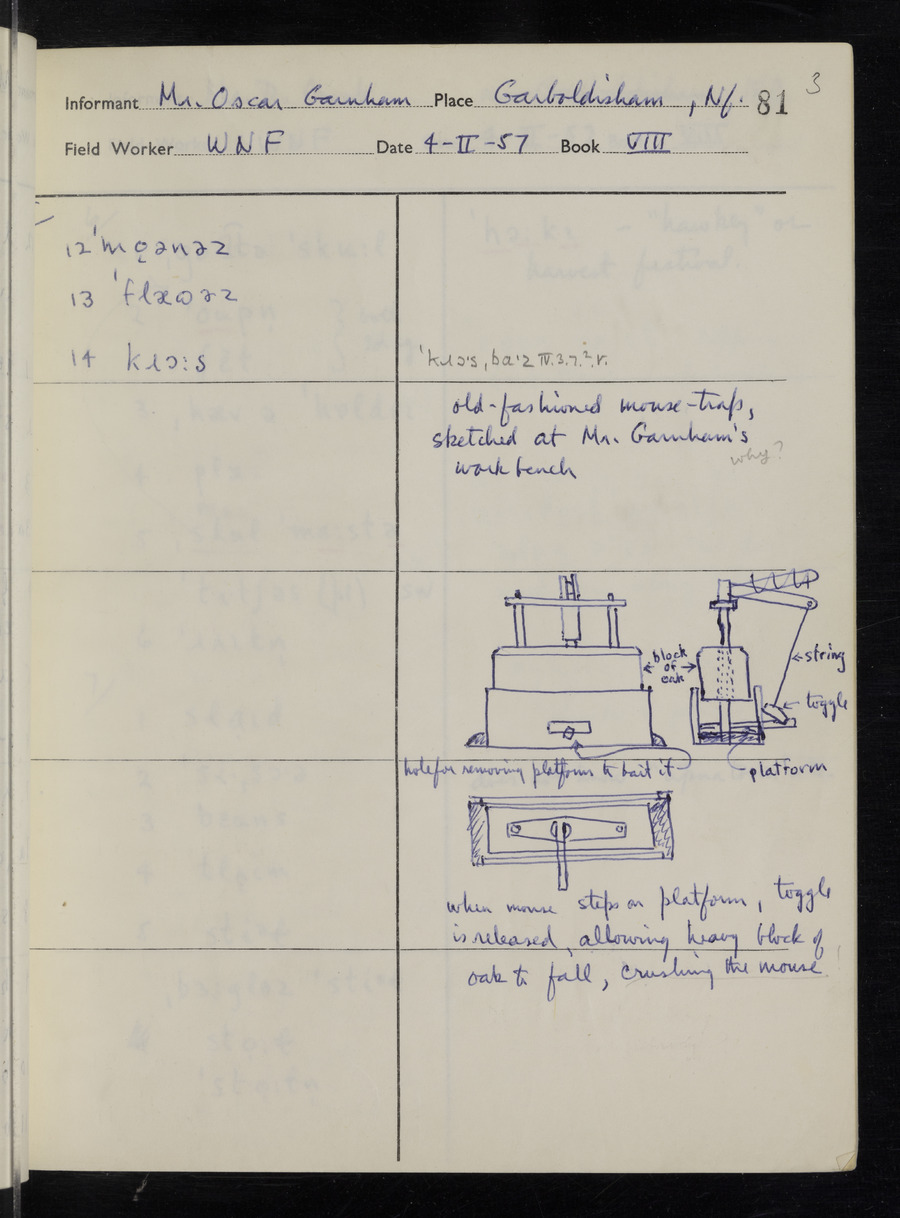 3
Informant Mr. Oscar Garnham Place Garboldisham, Nf. 81
Field Worker WNF Date 4-II-57 Book VIII
12
13 ˈflæʊəz
14 klɔ:s
ˈklɔˑs, baˑz IV.3.7.
old-fashioned mouse-trap,
sketched at Mr. Garnham's
work bench
why?
block
of
oak
string
toggle
hole for removing platform to bait it
platform
when mouse steps on platform, toggle
is released, allowing heavy block of
oak to fall, crushing the mouse